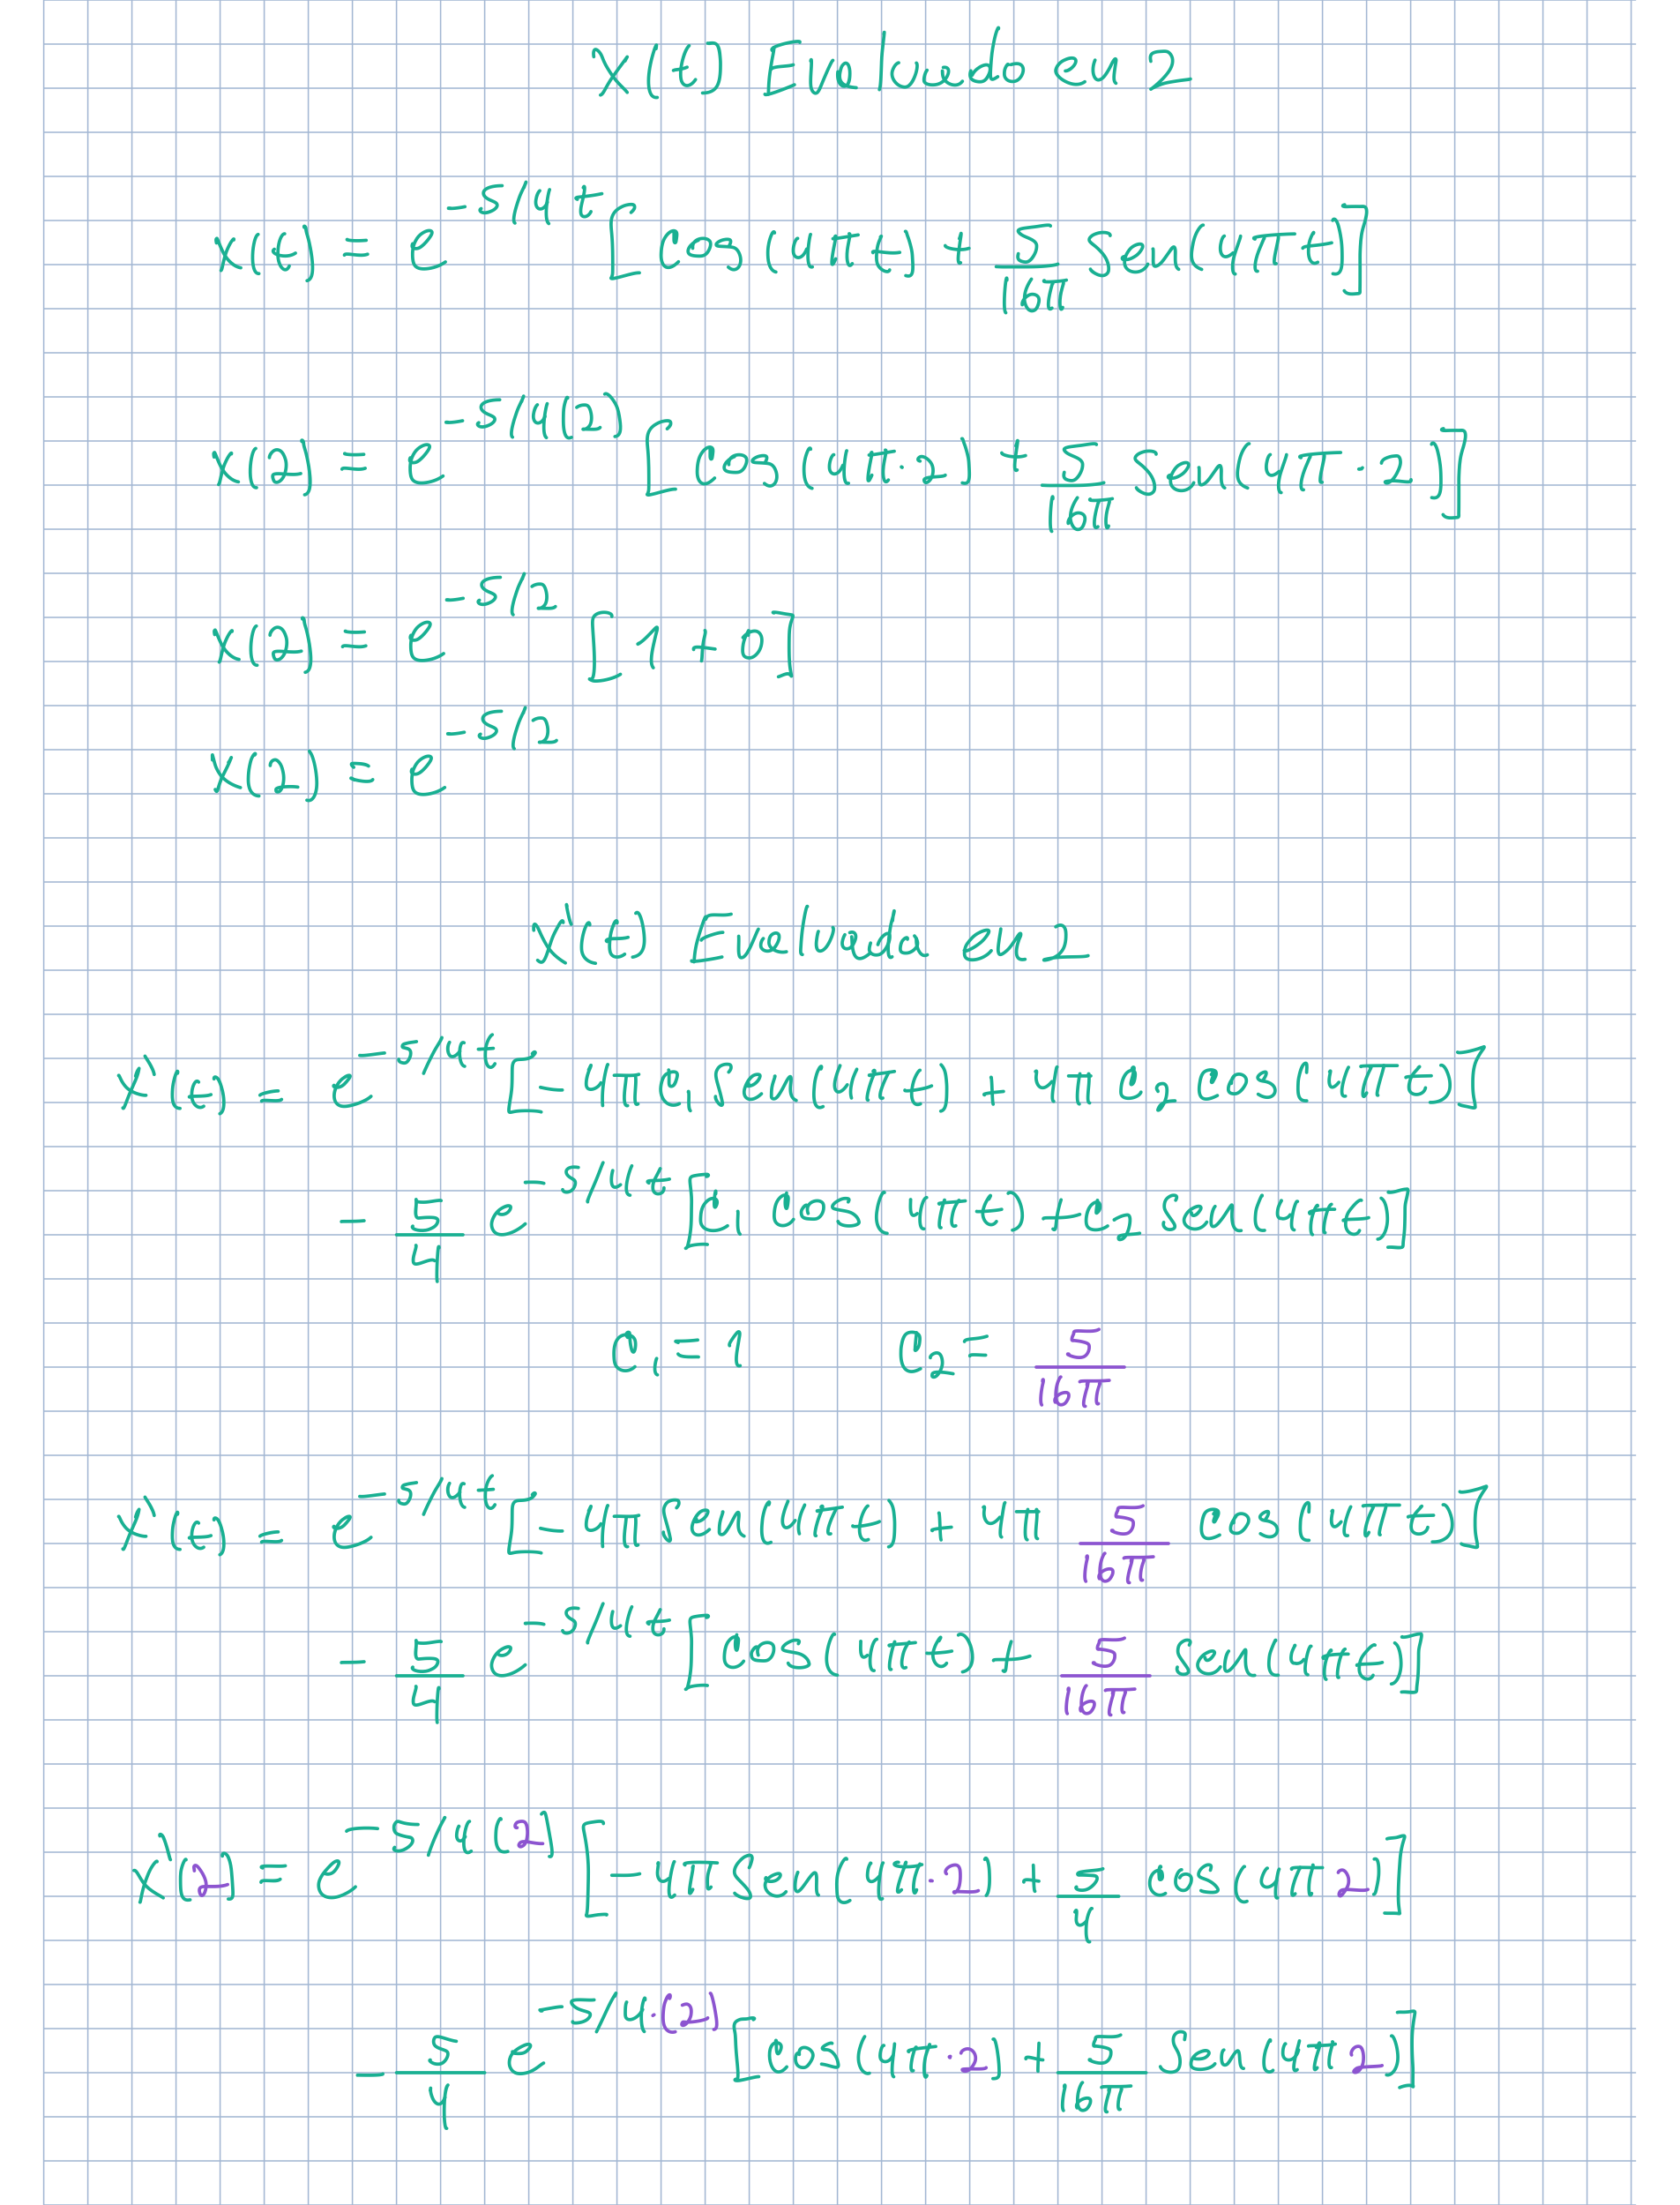 x(t) Evaluado en 2
x(t) = e^{-5/4 t} [cos(4πt) + 5/16π Sen(4πt)]
x(2) = e^{-5/4(2)} [cos(4π·2) + 5/16π Sen(4π·2)]
x(2) = e^{-5/2} [1 + 0]
x(2) = e^{-5/2}
x'(t) Evaluada en 2
x'(t) = e^{-5/4t} [-4π C₁ Sen(4πt) + 4π C₂ cos(4πt)]
- 5/4 e^{-5/4t} [C₁ cos(4πt) + C₂ Sen(4πt)]
C₁ = 1 C₂ = 5/16π
x'(t) = e^{-5/4t} [-4π Sen(4πt) + 4π 5/16π cos(4πt)]
- 5/4 e^{-5/4t} [cos(4πt) + 5/16π Sen(4πt)]
x'(2) = e^{-5/4(2)} [-4π Sen(4π·2) + 5/4 cos(4π2)]
- 5/4 e^{-5/4·(2)} [cos(4π·2) + 5/16π Sen(4π2)]